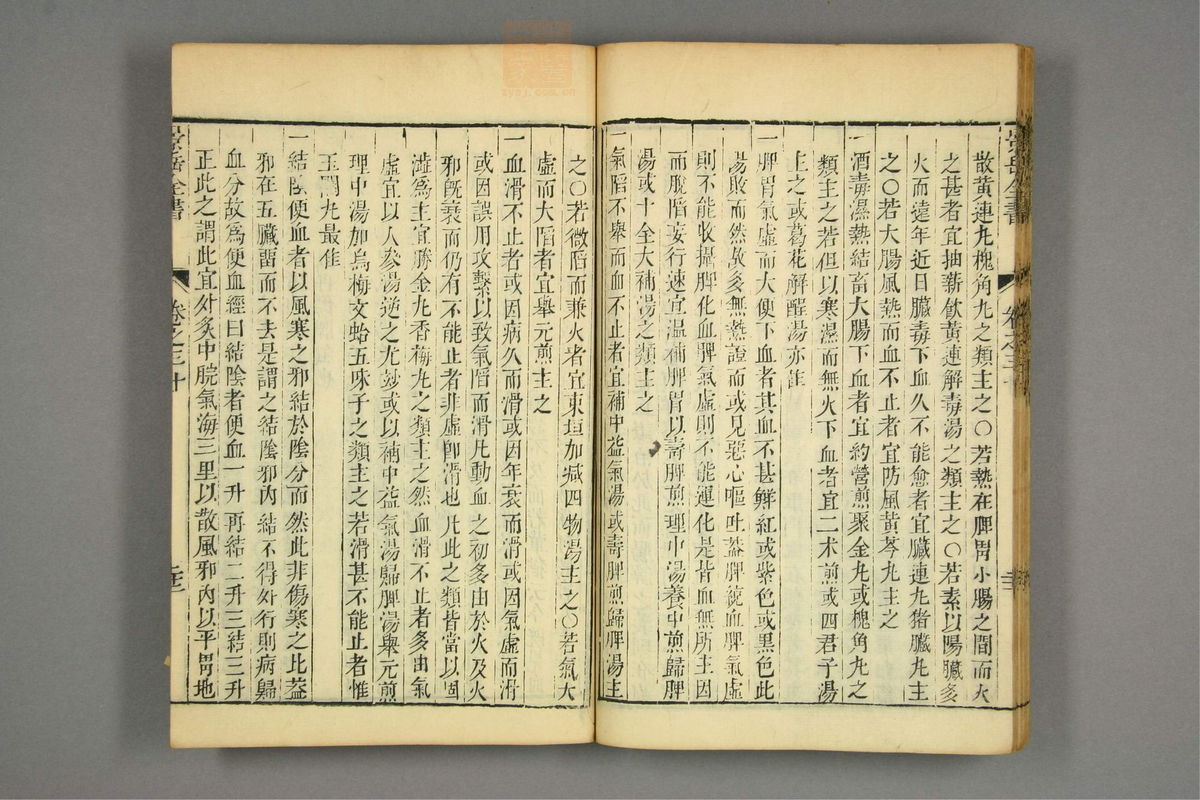 散黃連丸槐角丸之類主之○若熱在脾胃小腸之間而火
之甚者宜抽薪飲黃連解毒湯之類主之○若素以腸臟多
火而遠年近日臟毒下血久不能愈者宜臟連丸猪臟丸主
之○若大腸風熱而血不止者宜防風黃芩丸主之
一酒毒濕熱結畜大腸下血者宜約營煎聚金丸或槐角丸之
類主之若但以寒濕而無火下血者宜二朮煎或四君子湯
主之或葛花解酲湯亦佳
一脾胃氣虛而大便下血者其血不甚鮮紅或紫色或黑色此
陽敗而然故多無熱證而或見惡心嘔吐蓋脾統血脾氣虛
則不能收攝脾化血脾氣虛則不能運化是皆血無所主因
而脫陷妄行速宜溫補脾胃以壽脾煎理中湯養中煎歸脾
湯或十全大補湯之類主之
一氣陷不舉而血不止者宜補中益氣湯或壽脾煎歸脾湯主
之○若微陷而兼火者宜東垣加減四物湯主之○若氣大
虛而大陷者宜舉元煎主之
一血滑不止者或因病久而滑或因年衰而滑或因氣虛而滑
或因誤用攻擊以致氣陷而滑凡動血之初多由於火及火
邪既衰而仍有不能止者非虛卽滑也凡此之類皆當以固
澁爲主宜勝金丸香梅丸之類主之然血滑不止者多由氣
虛宜以人參湯送之尤妙或以補中益氣湯歸脾湯舉元煎
理中湯加烏梅文蛤五味子之類主之若滑甚不能止者惟
玉關丸最佳
一結陰便血者以風寒之邪結於陰分而然此非傷寒之比蓋
邪在五臟留而不去是謂之結陰邪內結不得外行則病歸
血分故爲便血經曰結陰者便血一升再結二升三結三升
正此之謂此宜外灸中脘氣海三里以散風邪內以平胃地
景岳全書
卷之三十